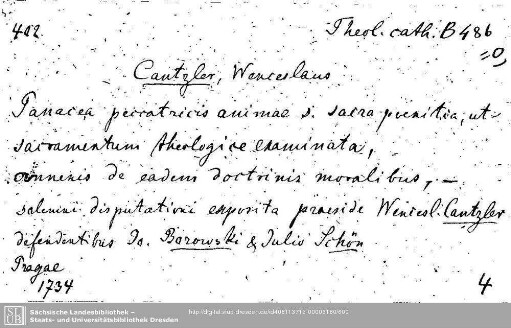 402.
Theol. cath. B 486
=0,
Cantzler, Wenceslaus
Panacea peccatricis animae s. sacra poenitia, ut
sacramentum theologice examinata,
omnenis de eadem doctrinis moralibus, –
solemni disputationi exposita praeside Wencesl. Cantzler
defendentibus Jo. Borowski & Julio Schön
Pragae
1734
4
Sächsische Landesbibliothek –
Staats- und Universitätsbibliothek Dresden